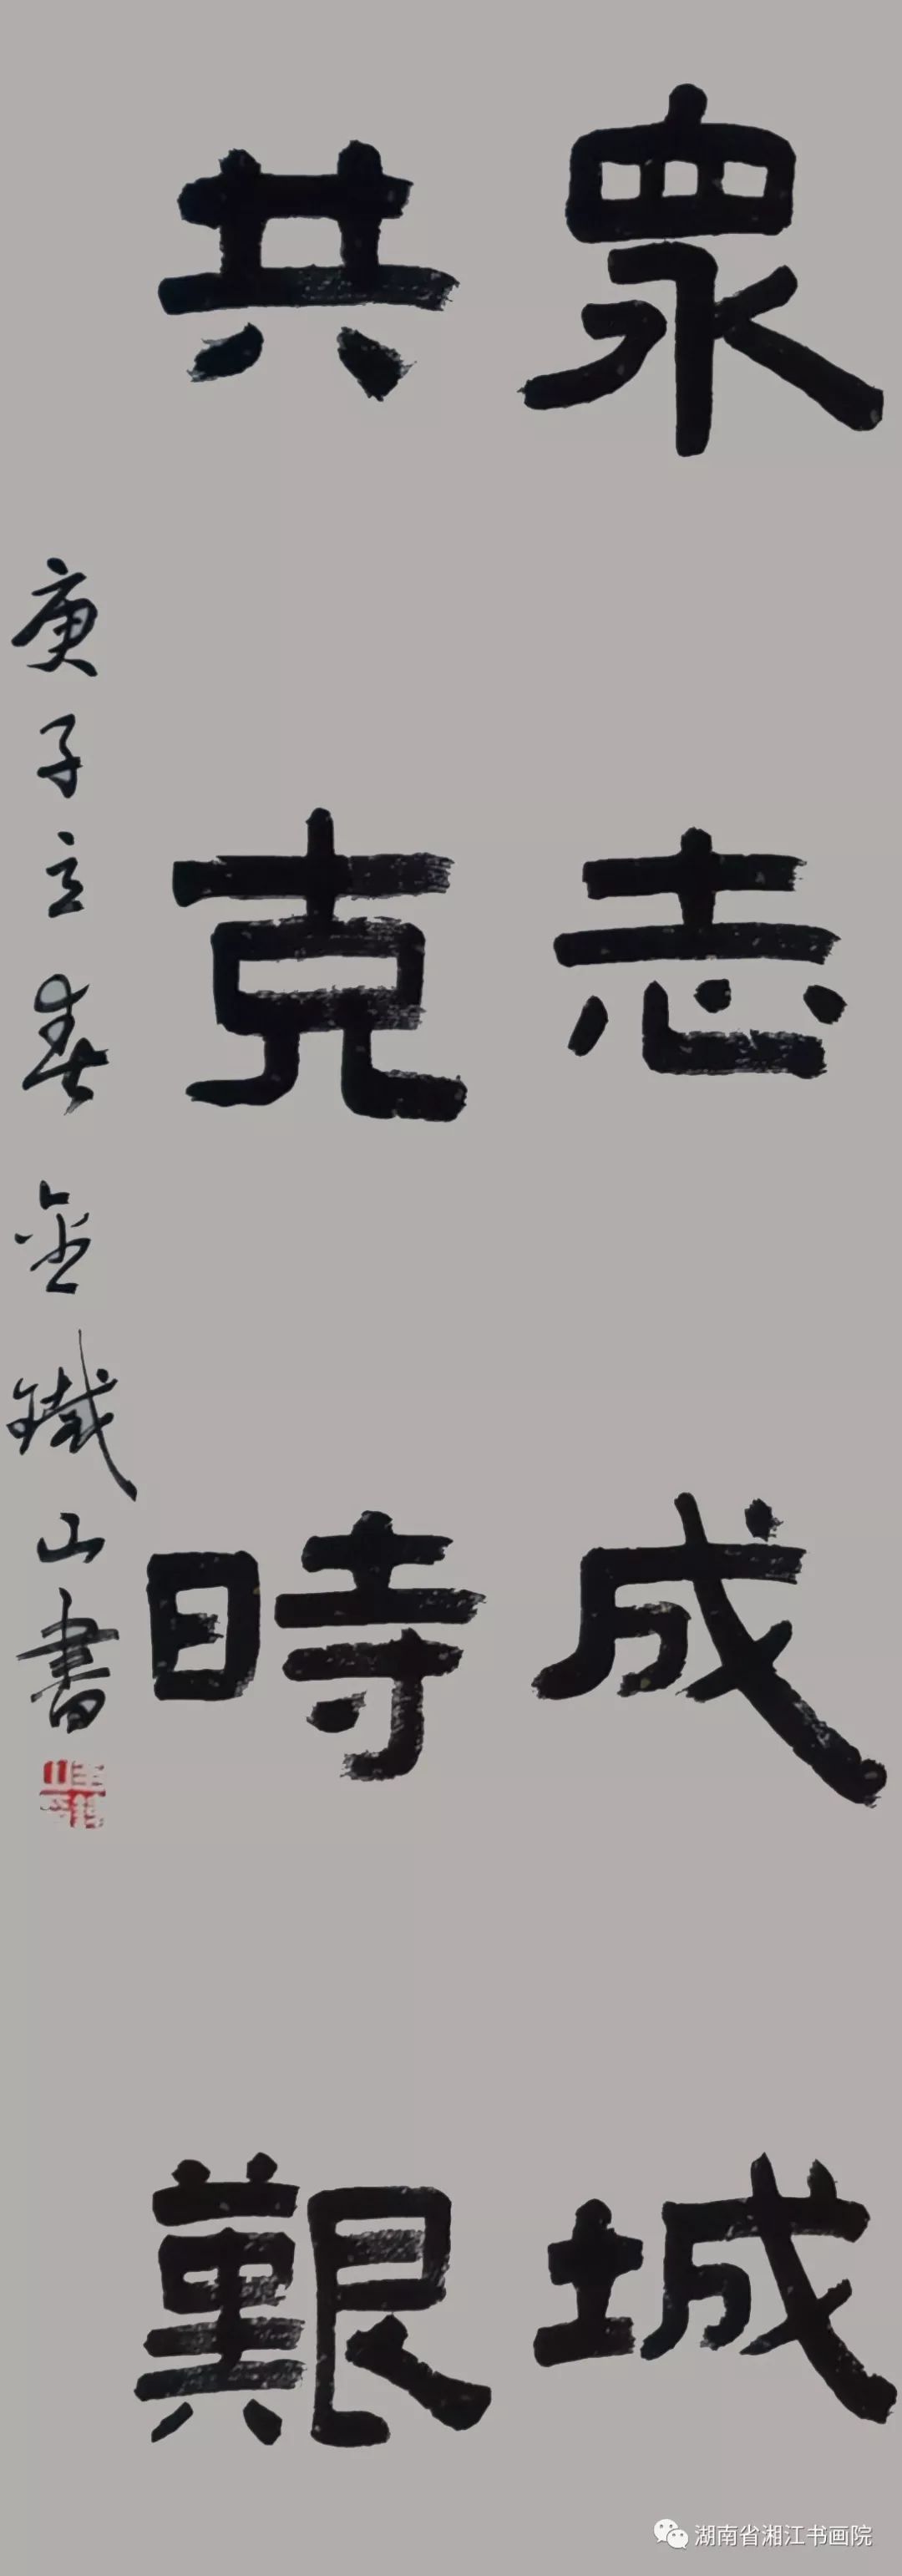 眾志成城
共克時艱
庚子立春金鐵山書
湖南省湘江书画院